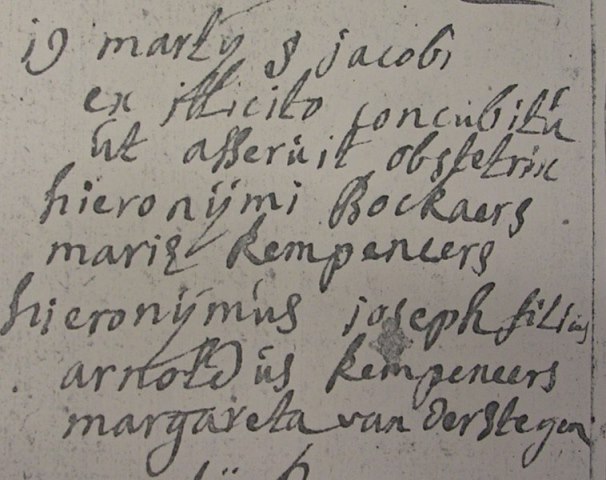 19 martij jacobi
ex illicito concubitu
ut asseruit obstetrix
hieronijmi Bockaers
marię kempeneers
hieronijmus joseph filius
arnoldus kempeneers
margareta van der stegen